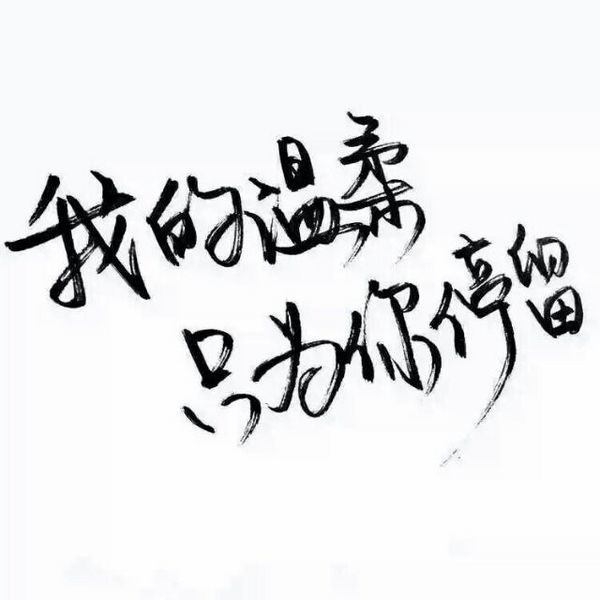 我的温柔
只为你停留